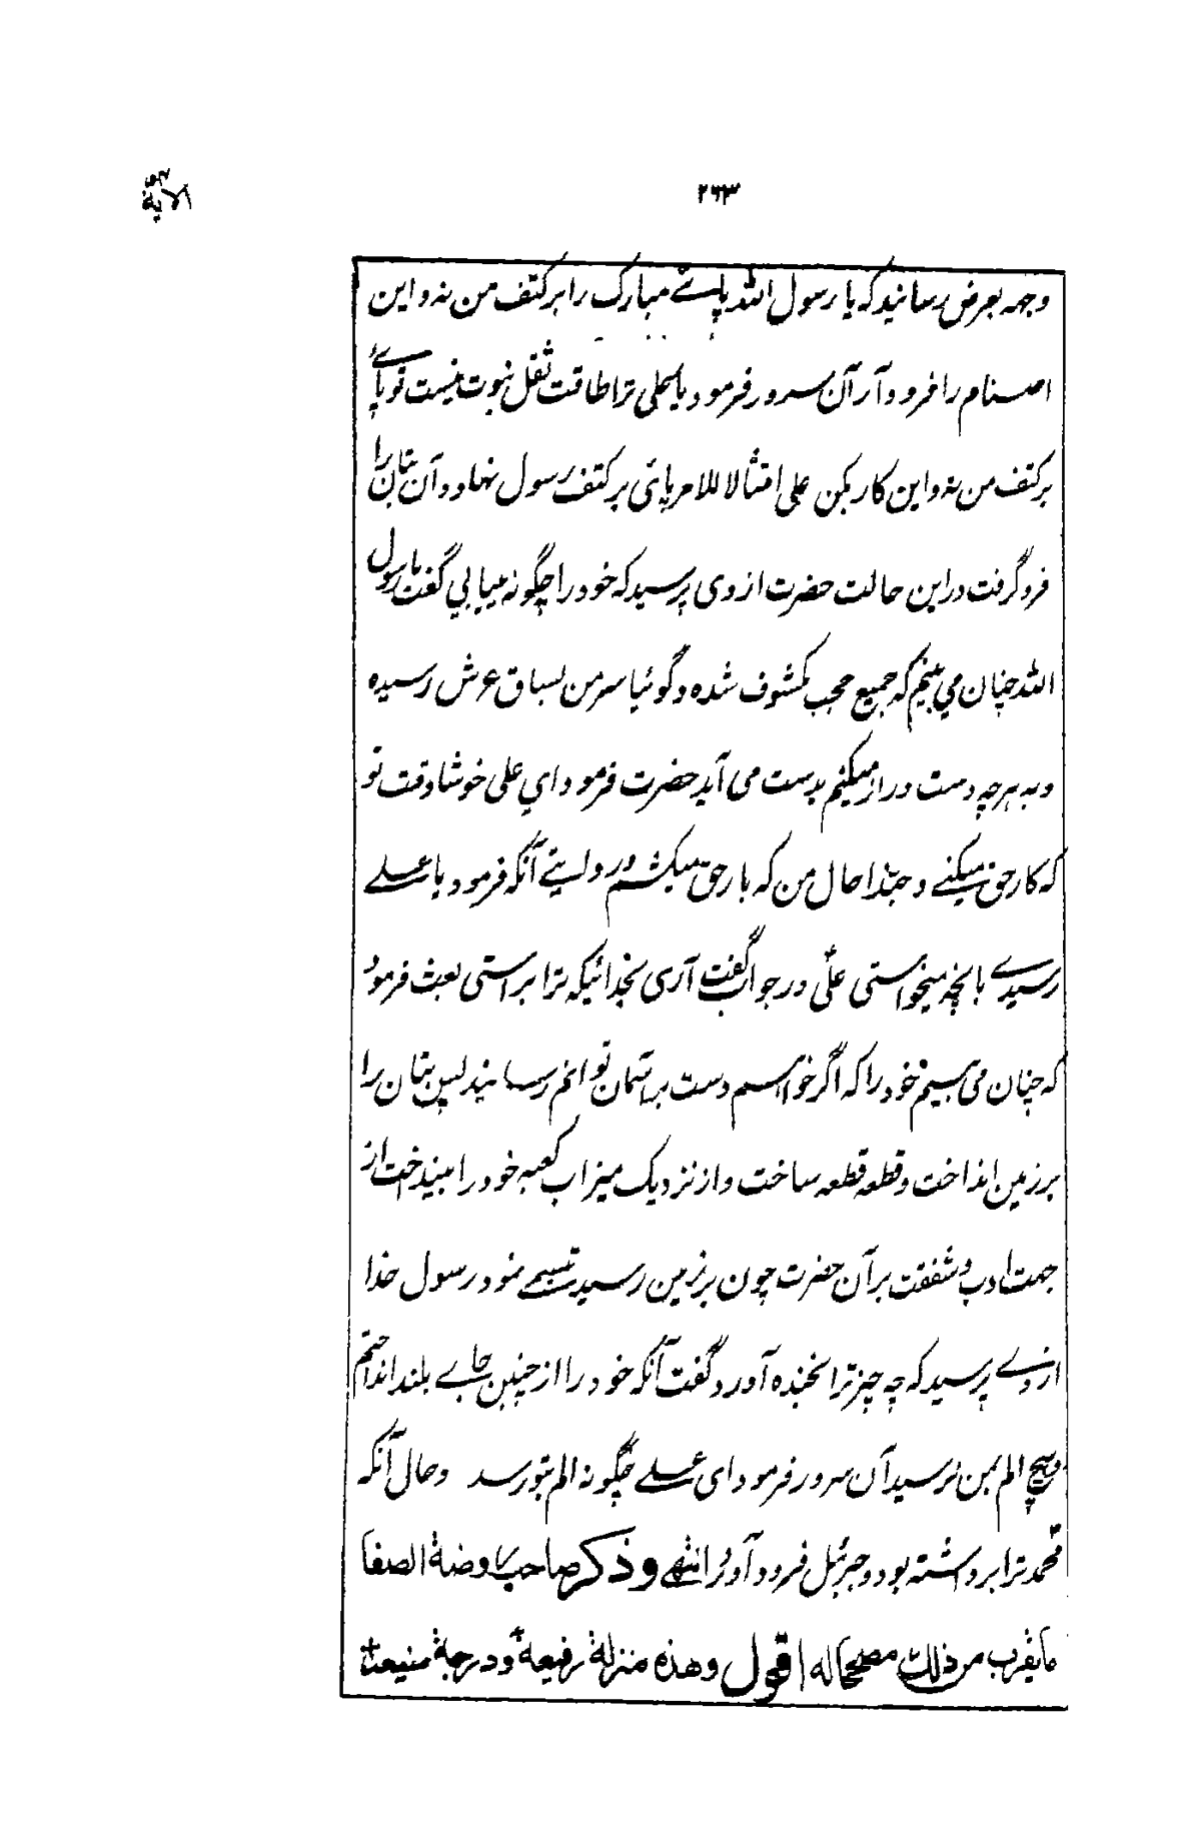 ٢٦٣
الآية
وجهه بعرض رسانید که یا رسول الله پائے مبارک را بر کتف من نه و این
اصنام را فرود آر آن سرور فرمود یا علی ترا طاقت ثقل نبوت نیست تو پائے
بر کتف من نه و این کار بکن علی امتثالا للامر پائی بر کتف رسول نهاد و آن بتان را
فرو گرفت در این حالت حضرت از وی پرسید که خود را چگونه مییابی گفت یا رسول
الله چنان می بینم که جمیع حجب مکشوف شده و گوئیا سر من بساق عرش رسیده
و به هر چه دست دراز میکنم بدست می آید حضرت فرمود ای علی خوشا وقت تو
که کار حق میکنے و حبذا حال من که بار حق میکشم و در روایتے آنکه فرمود یا علے
رسیدے بانچه میخواستی علی در جواب گفت آری بخدائیکه ترا براستی بعث فرمود
که چنان می بینم خود را که اگر خواهم دست بر آسمان توانم رسانید پس بتان را
بر زمین انداخت و قطعه قطعه ساخت و از نزدیک میزاب کعبه خود را بینداخت از
جهت ادب و شفقت بر آن حضرت چون بر زمین رسید تبسمے نمود رسول خدا
از وے پرسید که چه چیز ترا بخنده آورد گفت آنکه خود را از چنین جاے بلند انداختم
و هیچ الم بمن نرسید آن سرور فرمود ای علے چگونه الم بتو رسد و حال آنکه
محمد ترا برداشته بود و جبرئیل فرود آورد انتهی و ذکر صاحب روضة الصفا
ما یقرب من ذلک مصححا له اقول وهذه منزلة رفیعة و درجة منیعة